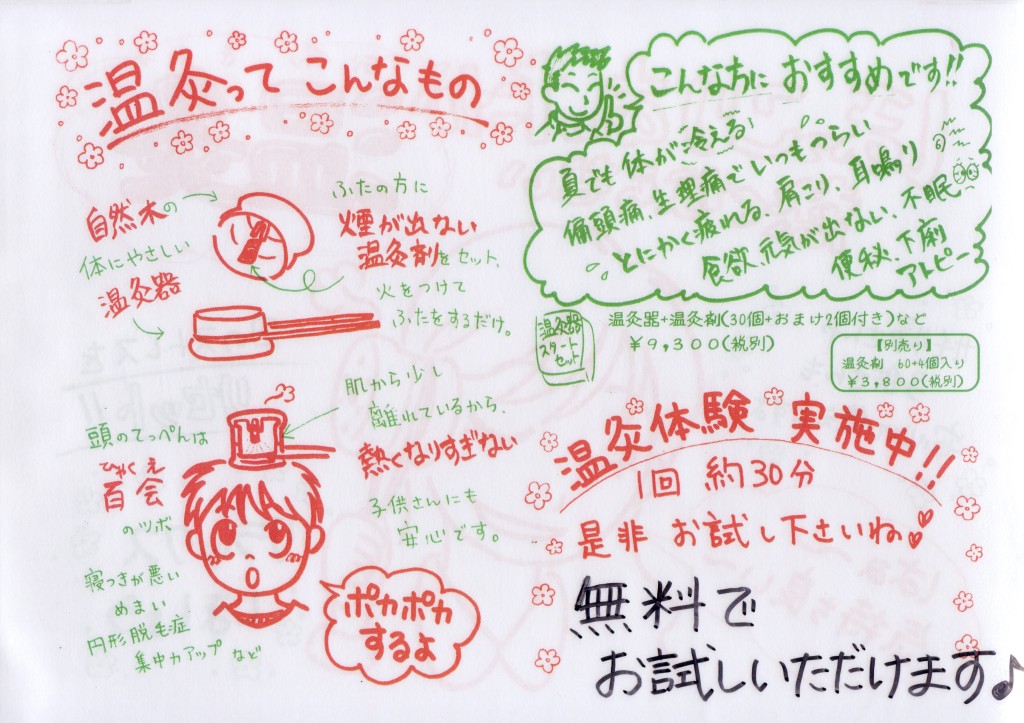 温灸って こんなもの
自然木の
体にやさしい
温灸器
ふたの方に
煙が出ない
温灸剤をセット、
火をつけて
ふたをするだけ。
頭のてっぺんは
ひゃくえ
百会
のツボ
寝つきが悪い
めまい
円形脱毛症
集中力アップ など
肌から少し
離れているから、
熱くなりすぎない
子供さんにも
安心です。
ポカポカ
するよ
こんな方に おすすめです!!
夏でも 体が冷える
偏頭痛、生理痛でいつもつらい
とにかく疲れる、肩こり、耳鳴り
食欲、元気が出ない、不眠
便秘、下痢
アトピー
温灸器
スタート
セット
温灸器+温灸剤(30個+おまけ2個付き)など
￥9,300(税別)
【別売り】
温灸剤 60+4個入り
￥3,800(税別)
温灸体験 実施中!!
1回 約30分
是非 お試し下さいね♡
無料で
お試しいただけます♪